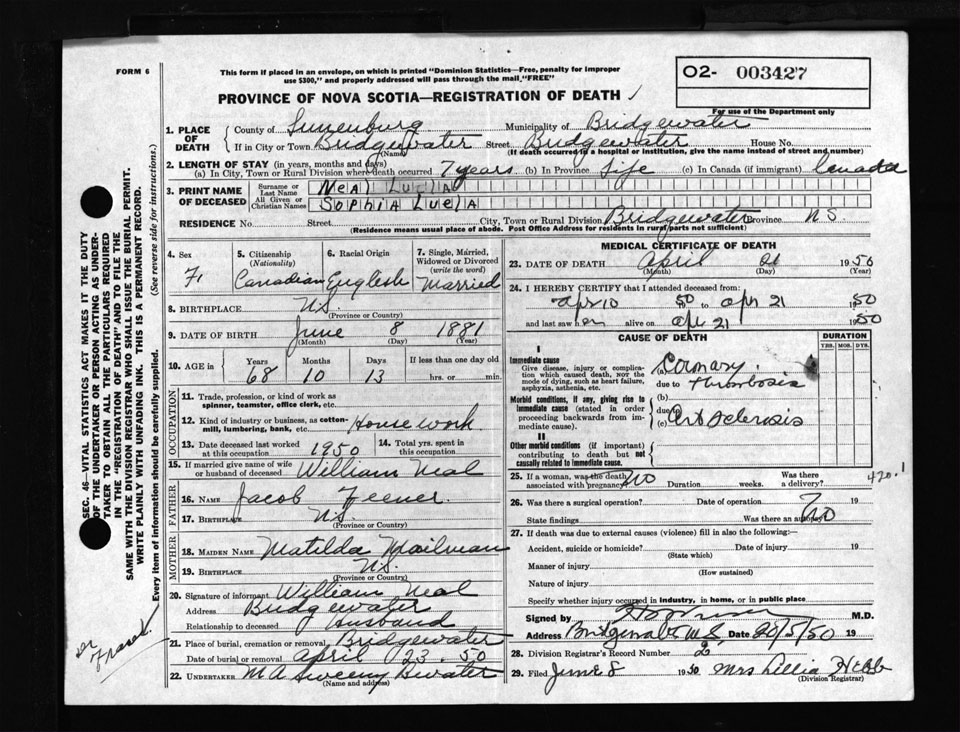 FORM 6
This form if placed in an envelope, on which is printed "Dominion Statistics—Free, penalty for improper
use $300," and properly addressed will pass through the mail "FREE"
PROVINCE OF NOVA SCOTIA—REGISTRATION OF DEATH
02- 003427
For use of the Department only
1. PLACE OF DEATH { County of Lunenburg Municipality of Bridgewater
If in City or Town Bridgewater (Name) Street Bridgewater House No.
(If death occurred in a hospital or institution, give the name instead of street and number)
2. LENGTH OF STAY (in years, months and days)
(a) In City, Town or Rural Division where death occurred 7 years (b) In Province Life (c) In Canada (if immigrant) Canada
3. PRINT NAME OF DECEASED { Surname or Last Name Neal Luella
All Given or Christian Names Sophia Luella
RESIDENCE No. Street City, Town or Rural Division Bridgewater Province N S
(Residence means usual place of abode. Post Office Address for residents in rural parts not sufficient)
4. Sex F
5. Citizenship (Nationality) Canadian
6. Racial Origin English
7. Single, Married, Widowed or Divorced (write the word) Married
8. BIRTHPLACE N.S.
(Province or Country)
9. DATE OF BIRTH June 8 1881
(Month) (Day) (Year)
10. AGE in { Years 68 Months 10 Days 13 If less than one day old hrs. or min.
OCCUPATION
11. Trade, profession, or kind of work as spinner, teamster, office clerk, etc.
12. Kind of industry or business, as cotten-mill, lumbering, bank, etc. House work
13. Date deceased last worked at this occupation 1950
14. Total yrs. spent in this occupation
15. If married give name of wife or husband of deceased William Neal
FATHER
16. NAME Jacob Feener
17. BIRTHPLACE N.S.
(Province or Country)
MOTHER
18. MAIDEN NAME Matilda Mailman
19. BIRTHPLACE N.S.
(Province or Country)
20. Signature of informant William Neal
Address Bridgewater
Relationship to deceased Husband
21. Place of burial, cremation or removal Bridgewater
Date of burial or removal April 23 50
22. UNDERTAKER M A Sweeny Bwater
(Name and address)
MEDICAL CERTIFICATE OF DEATH
23. DATE OF DEATH April 21 1950
(Month) (Day) (Year)
24. I HEREBY CERTIFY that I attended deceased from:
Apr 10 50 to apr 21 1950
and last saw h er alive on apr 21 1950
CAUSE OF DEATH
DURATION
YRS. MOS. DYS.
I
Immediate cause
Give disease, injury or complication which caused death, not the mode of dying, such as heart failure, asphyxia, asthenia, etc.
(a) Coronary
due to Thrombosis
Morbid conditions, if any, giving rise to immediate cause (stated in order proceeding backwards from immediate cause).
(b)
due to
(c) Art Sclerosis
II
Other morbid conditions (if important) contributing to death but not causally related to immediate cause.
420.1
25. If a woman, was the death associated with pregnancy? no Duration weeks. Was there a delivery?
26. Was there a surgical operation? Date of operation 19
State findings Was there an autopsy? No
27. If death was due to external causes (violence) fill in also the following:—
Accident, suicide or homicide? Date of injury 19
(State which)
Manner of injury
(How sustained)
Nature of injury
Specify whether injury occurred in industry, in home, or in public place
Signed by M.D.
Address Bridgewater N S Date 26/5/50 19
28. Division Registrar's Record Number 2
29. Filed June 8 1950 Mrs Lillia Hebb
(Division Registrar)
SEC. 46—VITAL STATISTICS ACT MAKES IT THE DUTY
OF THE UNDERTAKER OR PERSON ACTING AS UNDERTAKER TO OBTAIN ALL THE PARTICULARS REQUIRED
IN THE "REGISTRATION OF DEATH" AND TO FILE THE
SAME WITH THE DIVISION REGISTRAR WHO SHALL ISSUE THE BURIAL PERMIT.
WRITE PLAINLY WITH UNFADING INK. THIS IS A PERMANENT RECORD.
Every item of information should be carefully supplied. (See reverse side for instructions.)